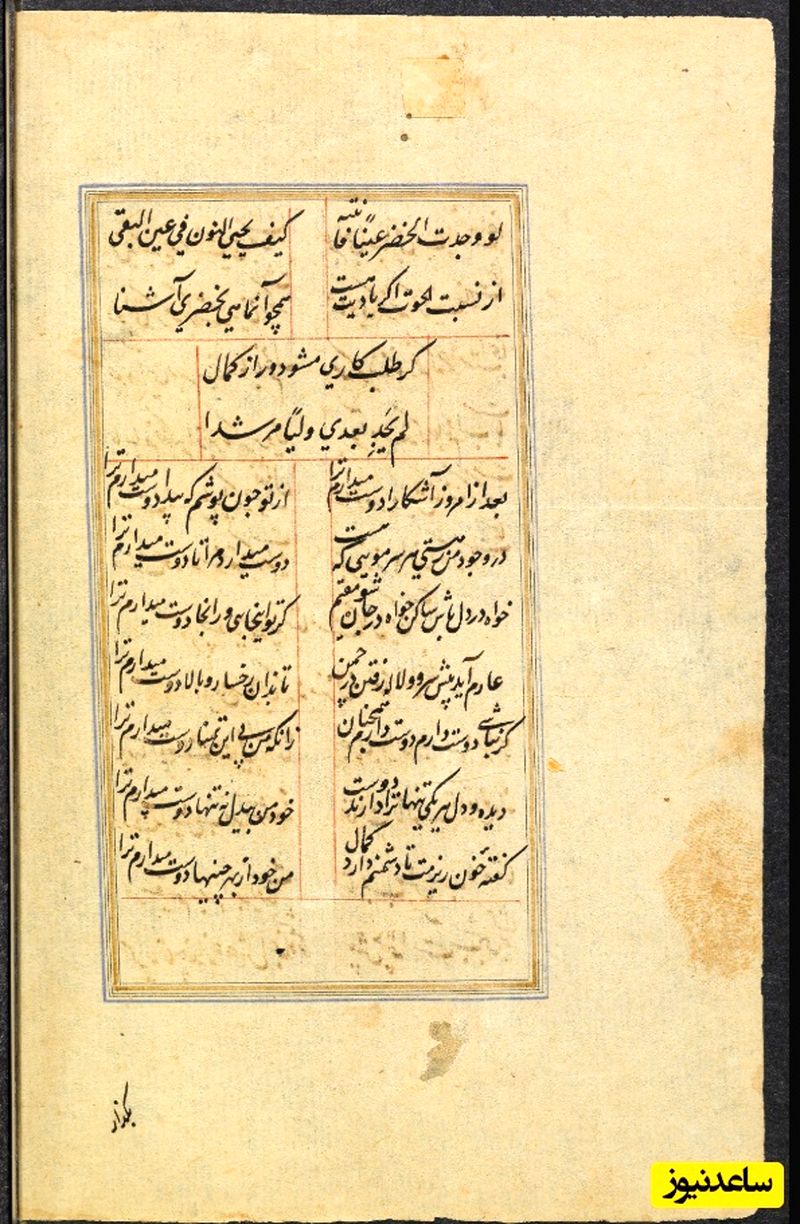 لو وجدت الخضر عینًا فائته کیف یحیی النون فی عین البقی
از نسبت الحوت اگر یادیت هست همچو آنماهی بخضری آشنا
کر طلب کاری مشو دور از کمال
لم یجد بعدی ولیًا مرشدا
بعد ازامروز آشکارا دوست میدارم ترا از تو چون پوشم که پیدا دوست میدارم ترا
در وجود من ز هستی هر سر مویی که هست دوست میدارد مرا تا دوست میدارم ترا
خواه در دل باش ساکن خواه در جان شو مقیم کر تو اینجایی ور آنجا دوست میدارم ترا
عارم آید پیش سرو و لاله رفتن در چمن تا بدان رخسار و بالا دوست میدارم ترا
کر نباشی دوست دارم دوست دارم همچنان زانکه من بی این تمنا دوست میدارم ترا
دیده و دل هر یکی تنها ترا دارند دوست خود من بیدل نه تنها دوست میدارم ترا
کفتهٔ خون ریزمت تا دشمنم دارد کمال من خود از بهر چنینها دوست میدارم ترا
بگداز
ساعدنیوز